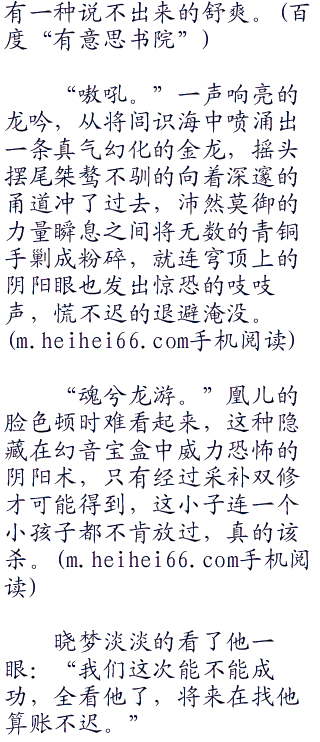 有一种说不出来的舒爽。(百
度“有意思书院”)
“嗷吼。”一声响亮的
龙吟，从将闾识海中喷涌出
一条真气幻化的金龙，摇头
摆尾桀骜不驯的向着深邃的
甬道冲了过去，沛然莫御的
力量瞬息之间将无数的青铜
手剿成粉碎，就连穹顶上的
阴阳眼也发出惊恐的吱吱
声，慌不迟的退避淹没。
(m.heihei66.com手机阅读)
“魂兮龙游。”凰儿的
脸色顷时难看起来，这种隐
藏在幻音宝盒中威力恐怖的
阴阳术，只有经过采补双修
才可能得到，这小子连一个
小孩子都不肯放过，真的该
杀。(m.heihei66.com手机阅
读)
晓梦淡淡的看了他一
眼：“我们这次能不能成
功，全看他了，将来在找他
算账不迟。”